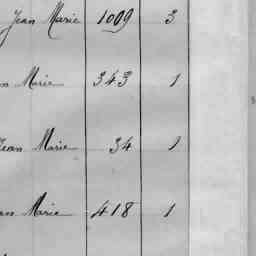 Jean Marie 1009 3
Marie 343 1
Jean Marie 34 1
Marie 418 1